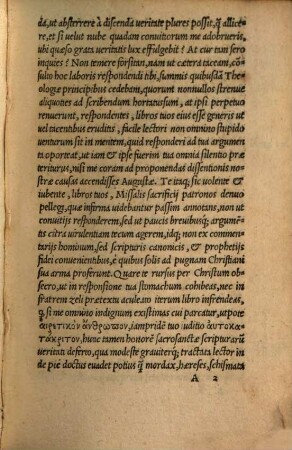 da, ut absterrere à discenda veritate plures possit, q̃ allice/
re, et si velut nube quadam convitiorum me adobrueris,
ubi quæso grata veritatis lux effulgebit? At cur tam sero
inquies? Non temere forsitan, nam ut cætera taceam, cõ/
silio hoc laboris respondendi tibi, summis quibusdã The/
ologiæ principibus cedebam, quorum nonnullos strenue
aliquoties ad scribendum hortatus sum, at ipsi perpetuo
renuerunt, respondentes, libros tuos eius esse generis ut
vel tacentibus eruditis, facile lectori non omnino stupido
venturum sit in mentem, quid responderi ad tua argumen
ta oporteat, ut tam & ipse fuerim tua omnia silentio præ
teriturus, nisi me coram ad proponendas dissentionis no/
stræ causas accendisses Augustæ. Te itaq; sic volente &
iubente, libro tuos, Missalis sacrificij patronos denuo
pellego, quæ infirma videbantur passim annotans, non ut
convitijs responderem, sed ut paucis brevibusq; argumẽ/
tis citra virulentiam tecum agerem, idq; non ex commen/
tarijs hominum, sed scripturis canonicis, & prophetijs
fidei convenientibus, è quibus solis ad pugnam Christiani
sua arma proferunt. Quare te rursus per Christum ob/
secro, ut in responsione tua stomachum cohibeas, nec in
fratrem zeli prætextu aculeum iterum libro infrendeas,
q̃ si me omnino indignum existimas cui parcatur, ut pote
αἱρετικὸν ἄνθρωπον, iampridẽ tuo iuditio αὐτοκα/
τάκριτον, huc tamen honorẽ sacrosanctæ scripturarũ
veritati deferto, qua modeste graviterq; tractata lector in
de piè doctus evadet potius q̃ mordax, hæreses, schismata
A 2